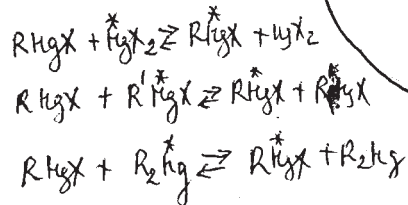 RHgX + H*gX₂ ⇌ RH*gX + HgX₂
RHgX + R'H*gX ⇌ RH*gX + R'HgX
RHgX + R₂H*g ⇌ RH*gX + R₂Hg